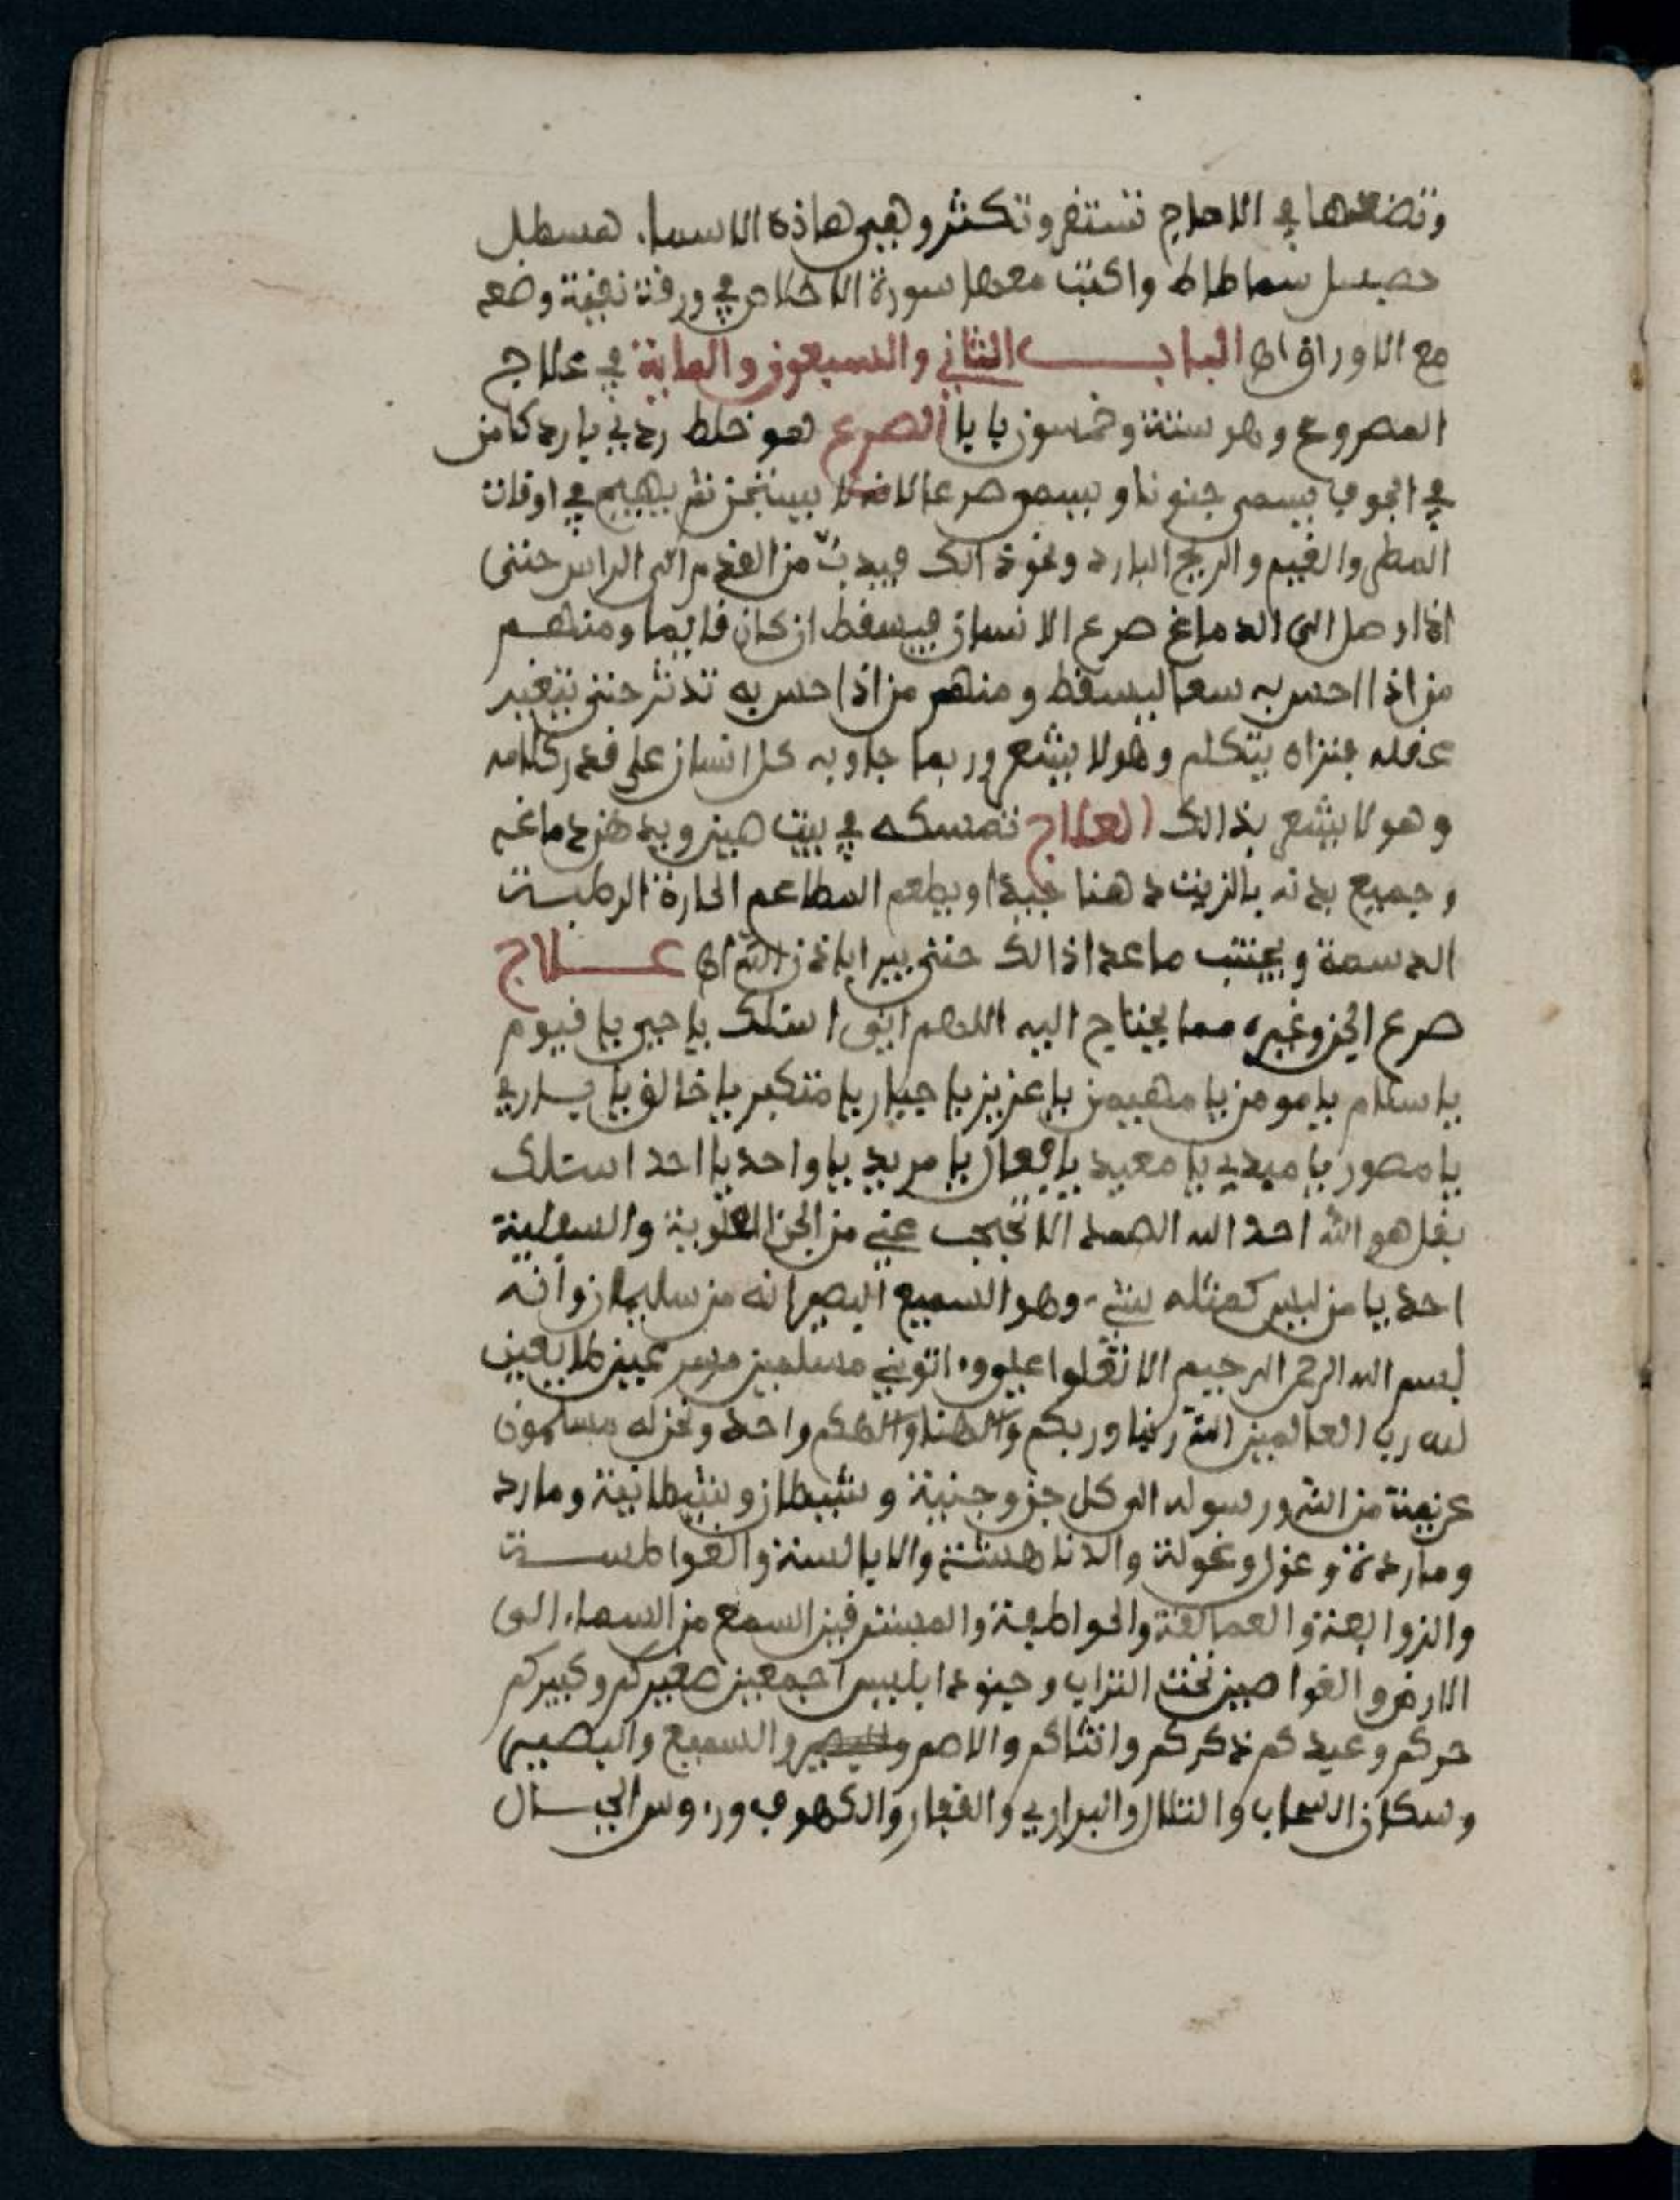 وتضعها في الاحاج تستفر وتكثر وهي هاذه الاسماء هسطل
حصبسل سماطاط واكتب معها سورة الاخلاص في ورقة نقية وضعه
مع الاوراق اه الباب الثاني والسبعون والماية في علاج
المصروع وهو ستة وخمسون بابا الصرع هو خلط ردي بارد كامن
في الجوف يسمى جنونا ويسمى صرعا لانه لا يستجن ثم يهيج في اوقات
المطر والغيم والريح البارد ونحو ذالك فيدبّ من القدم الى الراس حتى
اذا وصل الى الدماغ صرع الانسان فيسقط ان كان قايما ومنهم
من اذا احس به سعا ليسقط ومنهم من اذا احس به تدثر حتى يتغير
عقله فتراه يتكلم وهو لا يشعر وربما جاوبه كل انسان على قدر كلامه
وهو لا يشعر بذالك العلاج تمسكه في بيت هين ويدهن دماغه
وجميع بدنه بالزيت دهنا جيدا ويطعم المطاعم الحارة الرطبة
الدسمة ويجتنب ما عدا ذالك حتى يبرا باذن الله اه علاج
صرع الجن وغيره مما يحتاج اليه اللهم اني اسئلك يا حي يا قيوم
يا سلام يا مومن يا مهيمن يا عزيز يا جبار يا متكبر يا خالق يا باري
يا مصور يا مبدي يا معيد يا فعال يا مريد يا واحد يا احد اسئلك
بقل هو الله احد الله الصمد الا تحجب عني من الجن العلوية والسفلية
احد يا من ليس كمثله شيء وهو السميع البصير انه من سليمان وانه
بسم الله الرحمن الرحيم الا تعلوا علي واتوني مسلمين مسرعين طايعين
لله رب العالمين الله ربنا وربكم والهنا والهكم واحد ونحن له مسلمون
عزيمة من الله ورسوله الى كل جن وجنية وشيطان وشيطانية ومارد
وماردة وغول وغولة والدناهشة والابالسة والغواطسة
والزوابعة والعمالقة والحواطية والمسترقين السمع من السماء الى
الارض والغواصين تحت التراب وجنود ابليس اجمعين صغيركم وكبيركم
حركم وعبدكم ذكركم وانثاكم والاصم والبصير والسميع والبصير
وسكان السحاب والتلال والبراري والقفار والكهوف ورءوس الجبال